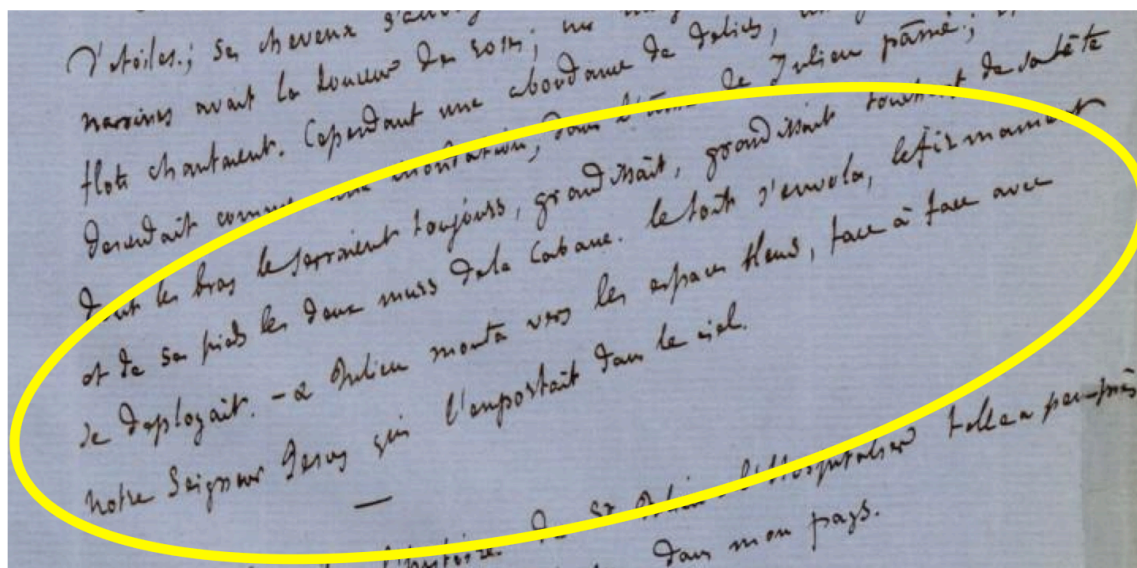 d'étoiles; ses cheveux s'allong
narines avait la douceur des roses; un
flots chantaient. Cependant une abondance de délices,
descendait comme une inondation, dans l'âme de Julien pâmé;
dont les bras le serraient toujours, grandissait, grandissait touchant de sa tête
et de ses pieds les deux murs de la cabane. le toit s'envola, le firmament
se deployait. - & Julien monta vers les espaces bleus, face à face avec
Notre Seigneur Jesus qui l'emportait dans le ciel.
l'histoire de St Julien l'Hospitalier telle à peu près
dans mon pays.